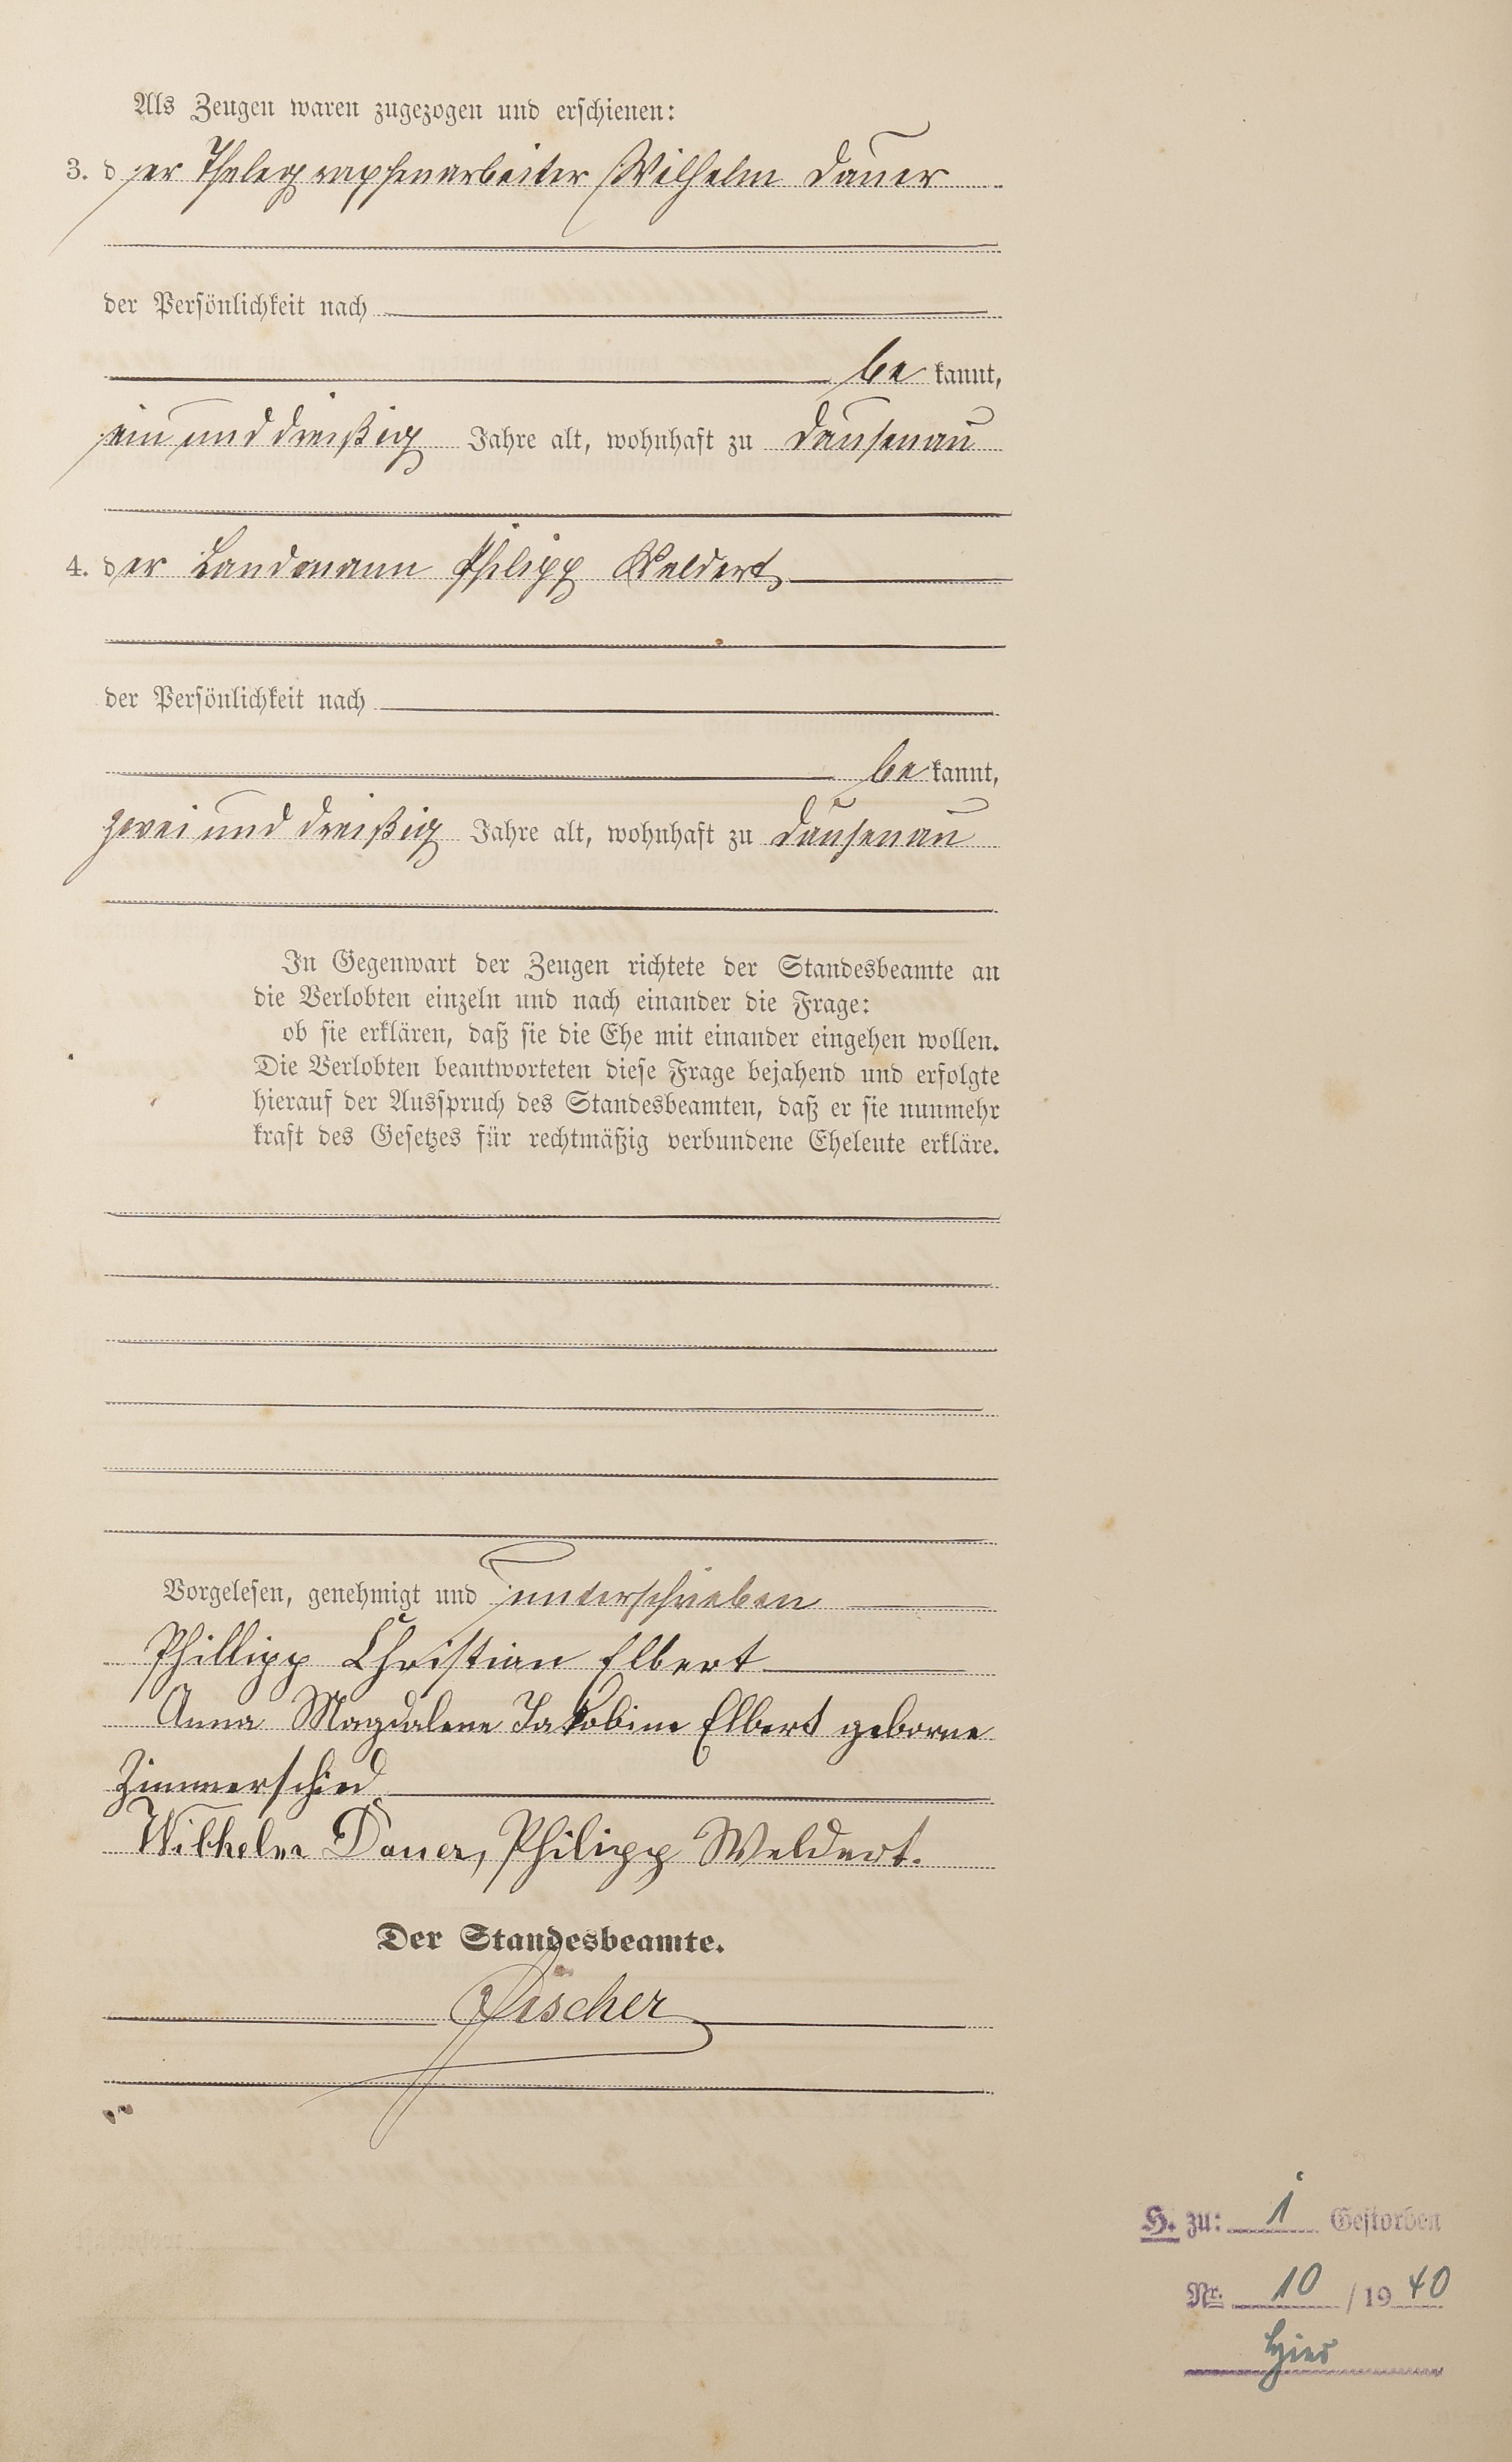 Als Zeugen waren zugezogen und erschienen:
3. der Thelegraphenarbeiter Wilhelm Dauer
der Persönlichkeit nach
be kannt,
ein und dreißig Jahre alt, wohnhaft zu Dausenau
4. der Landmann Philipp Weldert
der Persönlichkeit nach
be kannt,
zwei und dreißig Jahre alt, wohnhaft zu Dausenau
In Gegenwart der Zeugen richtete der Standesbeamte an
die Verlobten einzeln und nach einander die Frage:
ob sie erklären, daß sie die Ehe mit einander eingehen wollen.
Die Verlobten beantworteten diese Frage bejahend und erfolgte
hierauf der Ausspruch des Standesbeamten, daß er sie nunmehr
kraft des Gesetzes für rechtmäßig verbundene Eheleute erkläre.
Vorgelesen, genehmigt und unterschrieben
Phillipp Christian Elbert
Anna Magdalene Jakobine Elbert geborne
Zimmerschied
Wilhelm Dauer, Philipp Weldert.
Der Standesbeamte.
Fischer
H. zu: 1 Gestorben
Nr. 10 / 19 40
hier